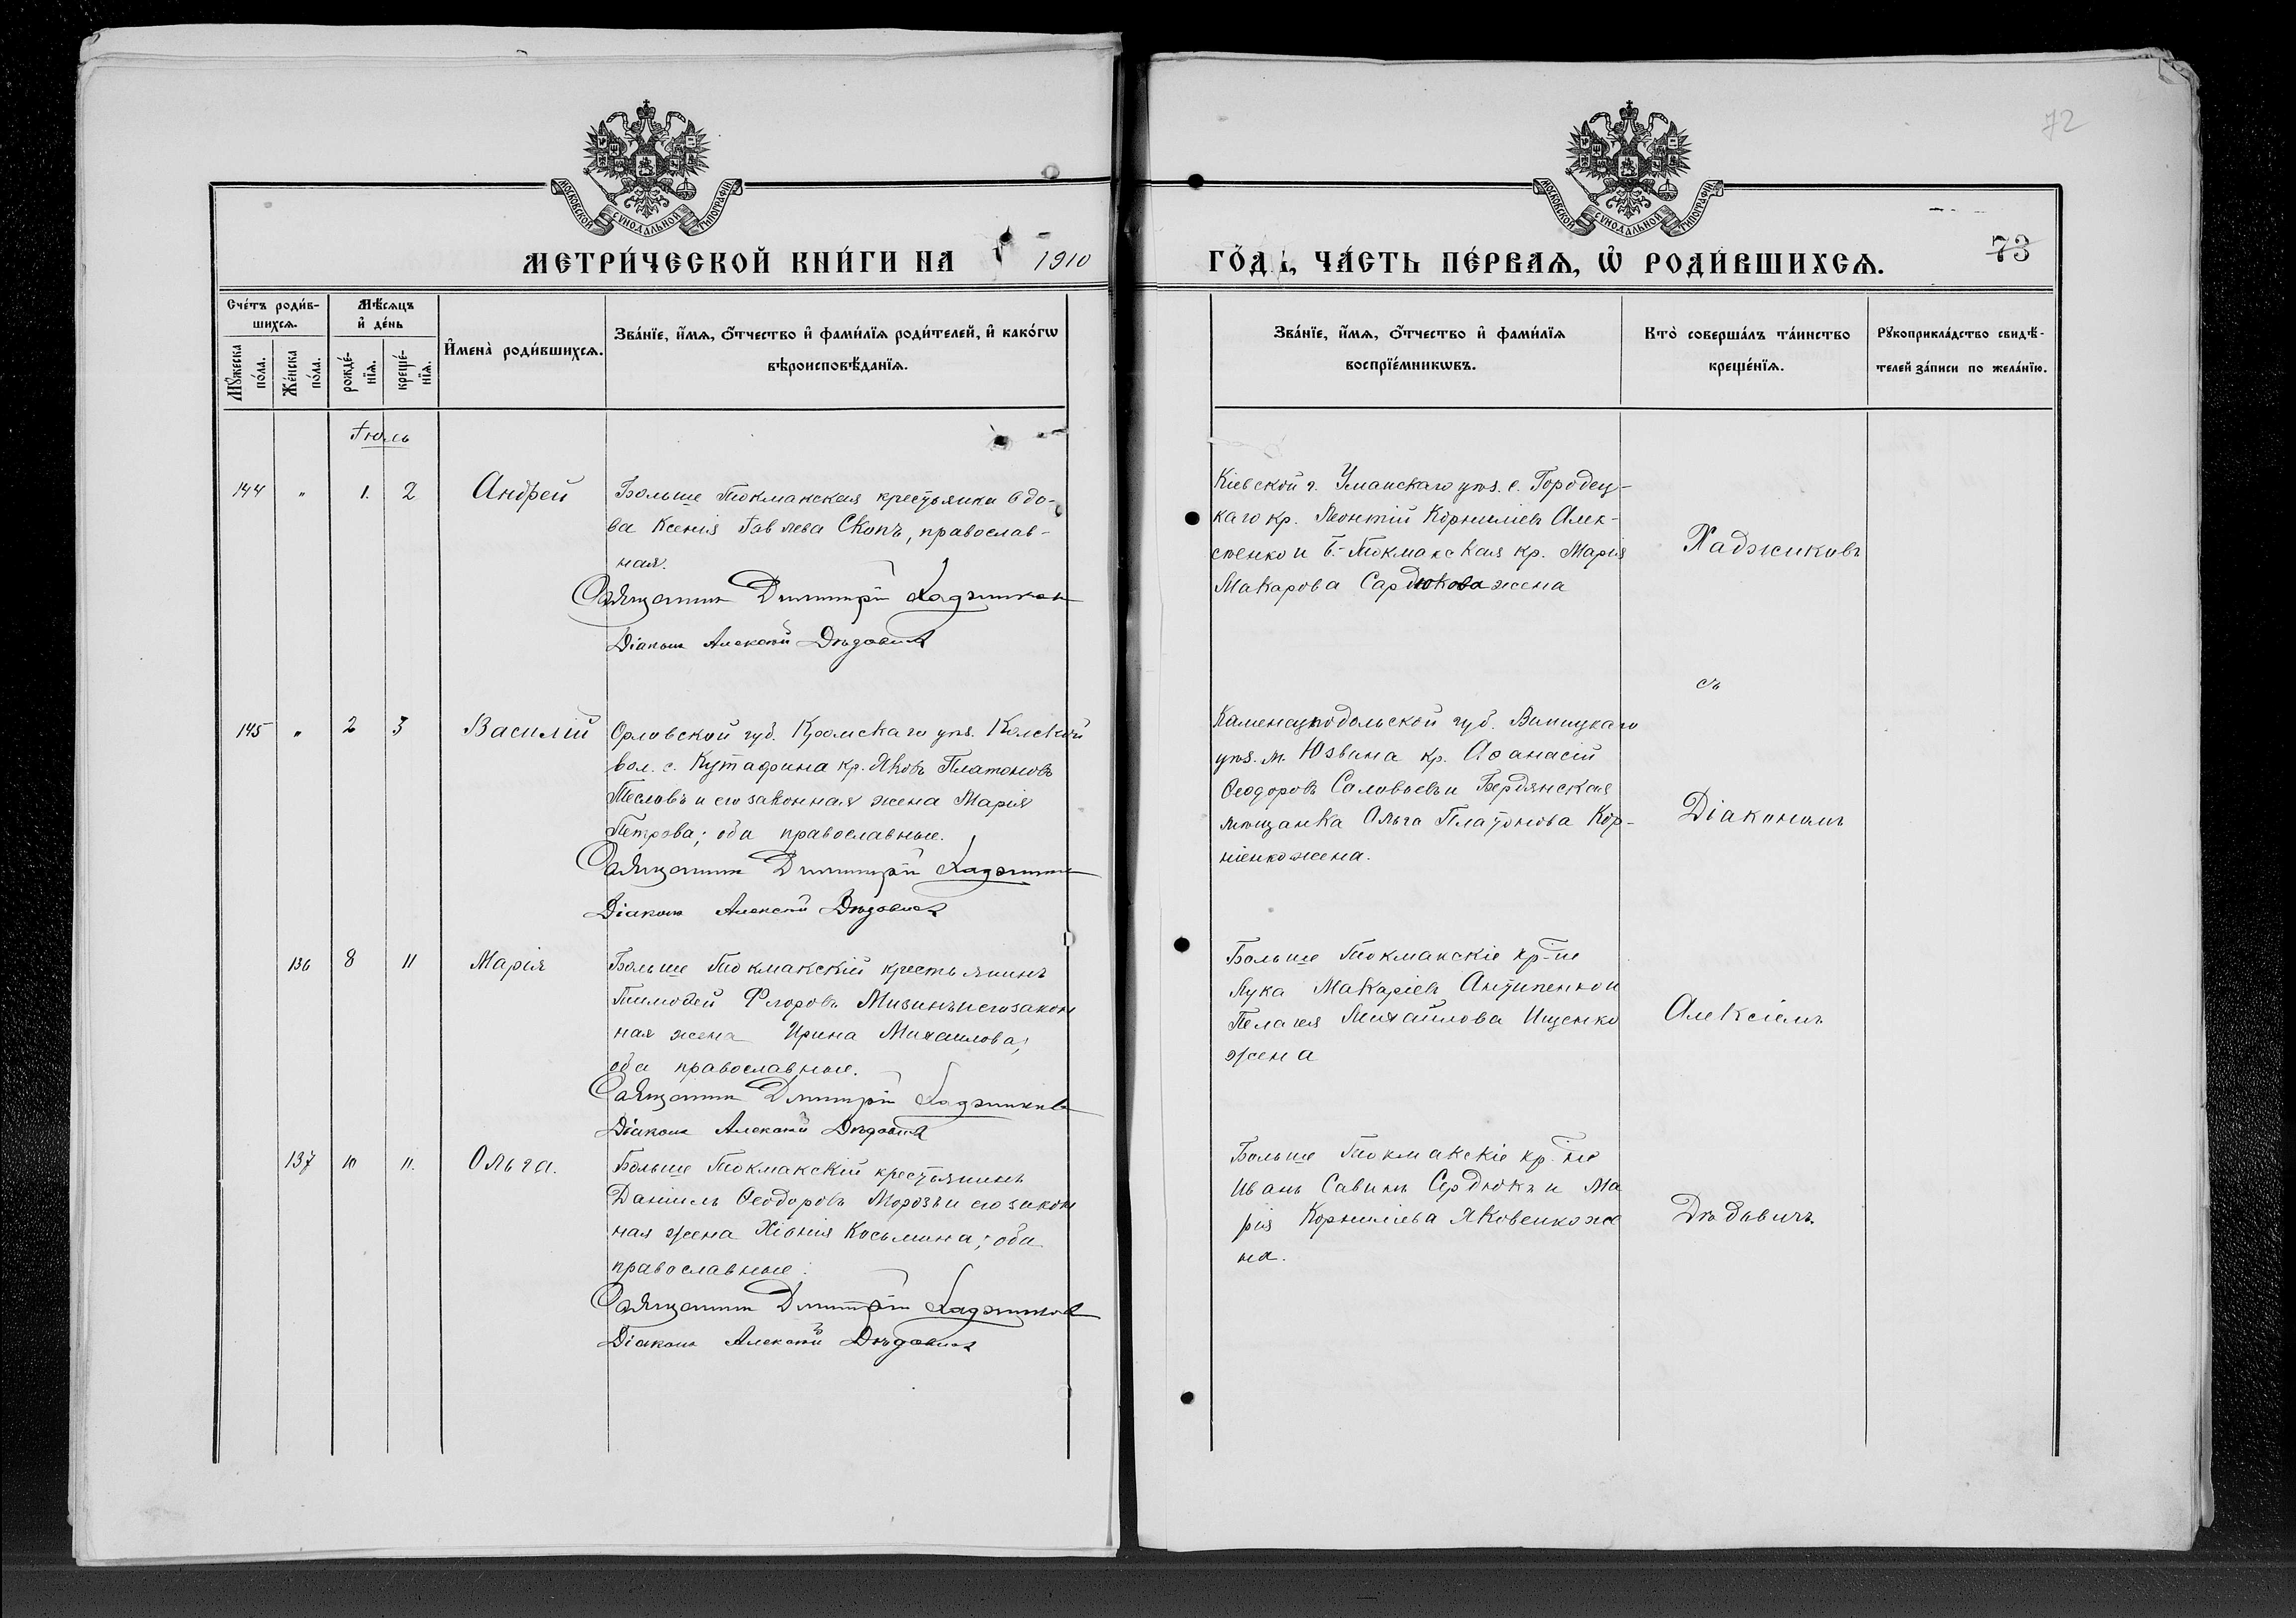 72
МОСКОВСКОЙ СѴНОДАЛЬНОЙ ТИПОГРАФІИ
МОСКОВСКОЙ СѴНОДАЛЬНОЙ ТИПОГРАФІИ
МЕТРИ́ЧЕСКОЙ КНИ́ГИ НА 1910
ГО́Д, ЧА́СТЬ ПЕ́РВАѦ, Ѡ҆ РОДИ́ВШИХСѦ.
73
Сче́тъ роди́в-
шихсѧ.
Мѣ́сѧцъ
и҆ де́нь
Мꙋ́жеска
по́ла.
Же́нска
по́ла.
рожде́-
нїѧ.
креще́-
нїѧ.
И҆мена̀ роди́вшихсѧ.
Зва́нїе, и҆́мѧ, ѻ҆́тчество и҆ фами́лїѧ роди́телей, и҆ како́гѡ
вѣроисповѣ́данїѧ.
Зва́нїе, и҆́мѧ, ѻ҆́тчество и҆ фами́лїѧ
воспрїе́мникѡвъ.
Кто̀ соверша́лъ та́инство
креще́нїѧ.
Рꙋкоприкла́дство свидѣ́-
телей за́писи по жела́нїю.
Іюль
144 " 1. 2 Андрей
Больше Токмакская крестьянка вдо-
ва Ксенія Іовлева Скопъ, православ-
ная.
Священникъ Димитрій Хаджиновъ
Діаконъ Алексій Дѣдовичъ
Кіевской г. Уманскаго уѣз. с. Городец-
каго кр. Леонтій Корниліевъ Алек-
сѣенко и Б.-Токмакская кр. Марія
Макарова Сардюкова жена
Хаджиновъ
145 " 2 3 Василій
Орловской губ. Кромскаго уѣз. Колской
вол. с. Кутафина кр. Яковъ Платоновъ
Тесловъ и его законная жена Марія
Петрова; оба православные.
Священникъ Димитрій Хаджиновъ
Діаконъ Алексій Дѣдовичъ
Каменецподольской губ. Виницкаго
уѣз. м. Юзвина кр. Аѳанасій
Ѳеодоровъ Соловьевъ и Бердянская
мѣщанка Ольга Платонова Кор-
ніенко жена.
съ
Діакономъ
136 8 11 Марія
Больше Токмакскій крестьянинъ
Тимоѳей Флоровъ Мизинъ и его закон
ная жена Ирина Михаилова;
оба православные.
Священникъ Димитрій Хаджиновъ
Діаконъ Алексій Дѣдовичъ
Больше Токмакскіе кр-не
Лука Макаріевъ Антипенко и
Пелагея Михайлова Ищенко
жена
Алексіемъ
137 10 11. Ольга.
Больше Токмакскій крестьянинъ
Даніилъ Ѳеодоровъ Морозъ и его закон
ная жена Хіонія Косьмина; оба
православные.
Священникъ Димитрій Хаджиновъ
Діаконъ Алексій Дѣдовичъ
Больше Токмакскіе кр-не
Иванъ Савинъ Сердюкъ и Ма
рія Корниліева Яковенко же
на.
Дѣдовичъ.